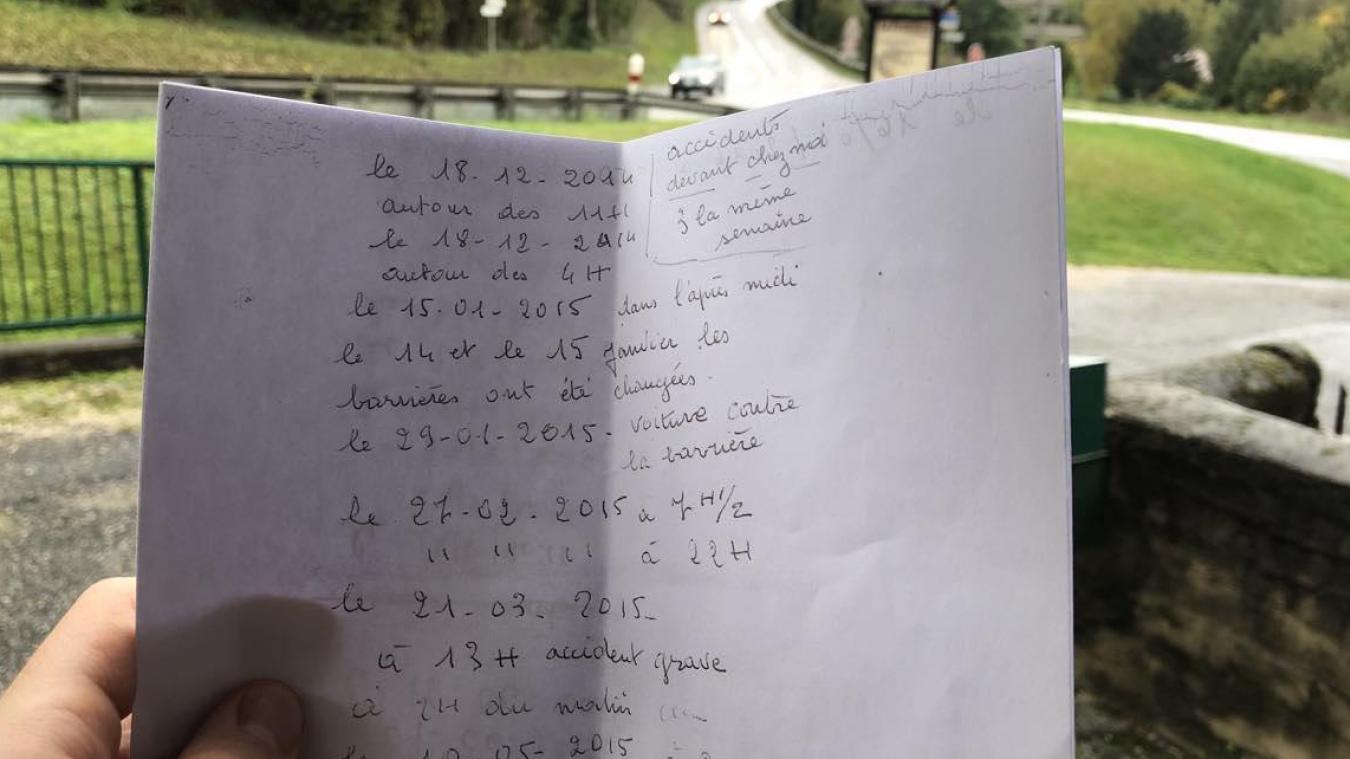 accidents
devant chez moi
3 la même
semaine
le 18-12-2014
autour des 11H
le 18-12-2014
autour des 4H
le 15.01-2015 dans l'après midi
le 14 et le 15 janvier les
barrières ont été changées.
le 29-01-2015. voiture contre
la barrière
le 27-02-2015 à 7H1/2
" " " à 22H
le 21-03-2015_
à 13H accident grave
à 2H du matin
le 10-05-2015 à